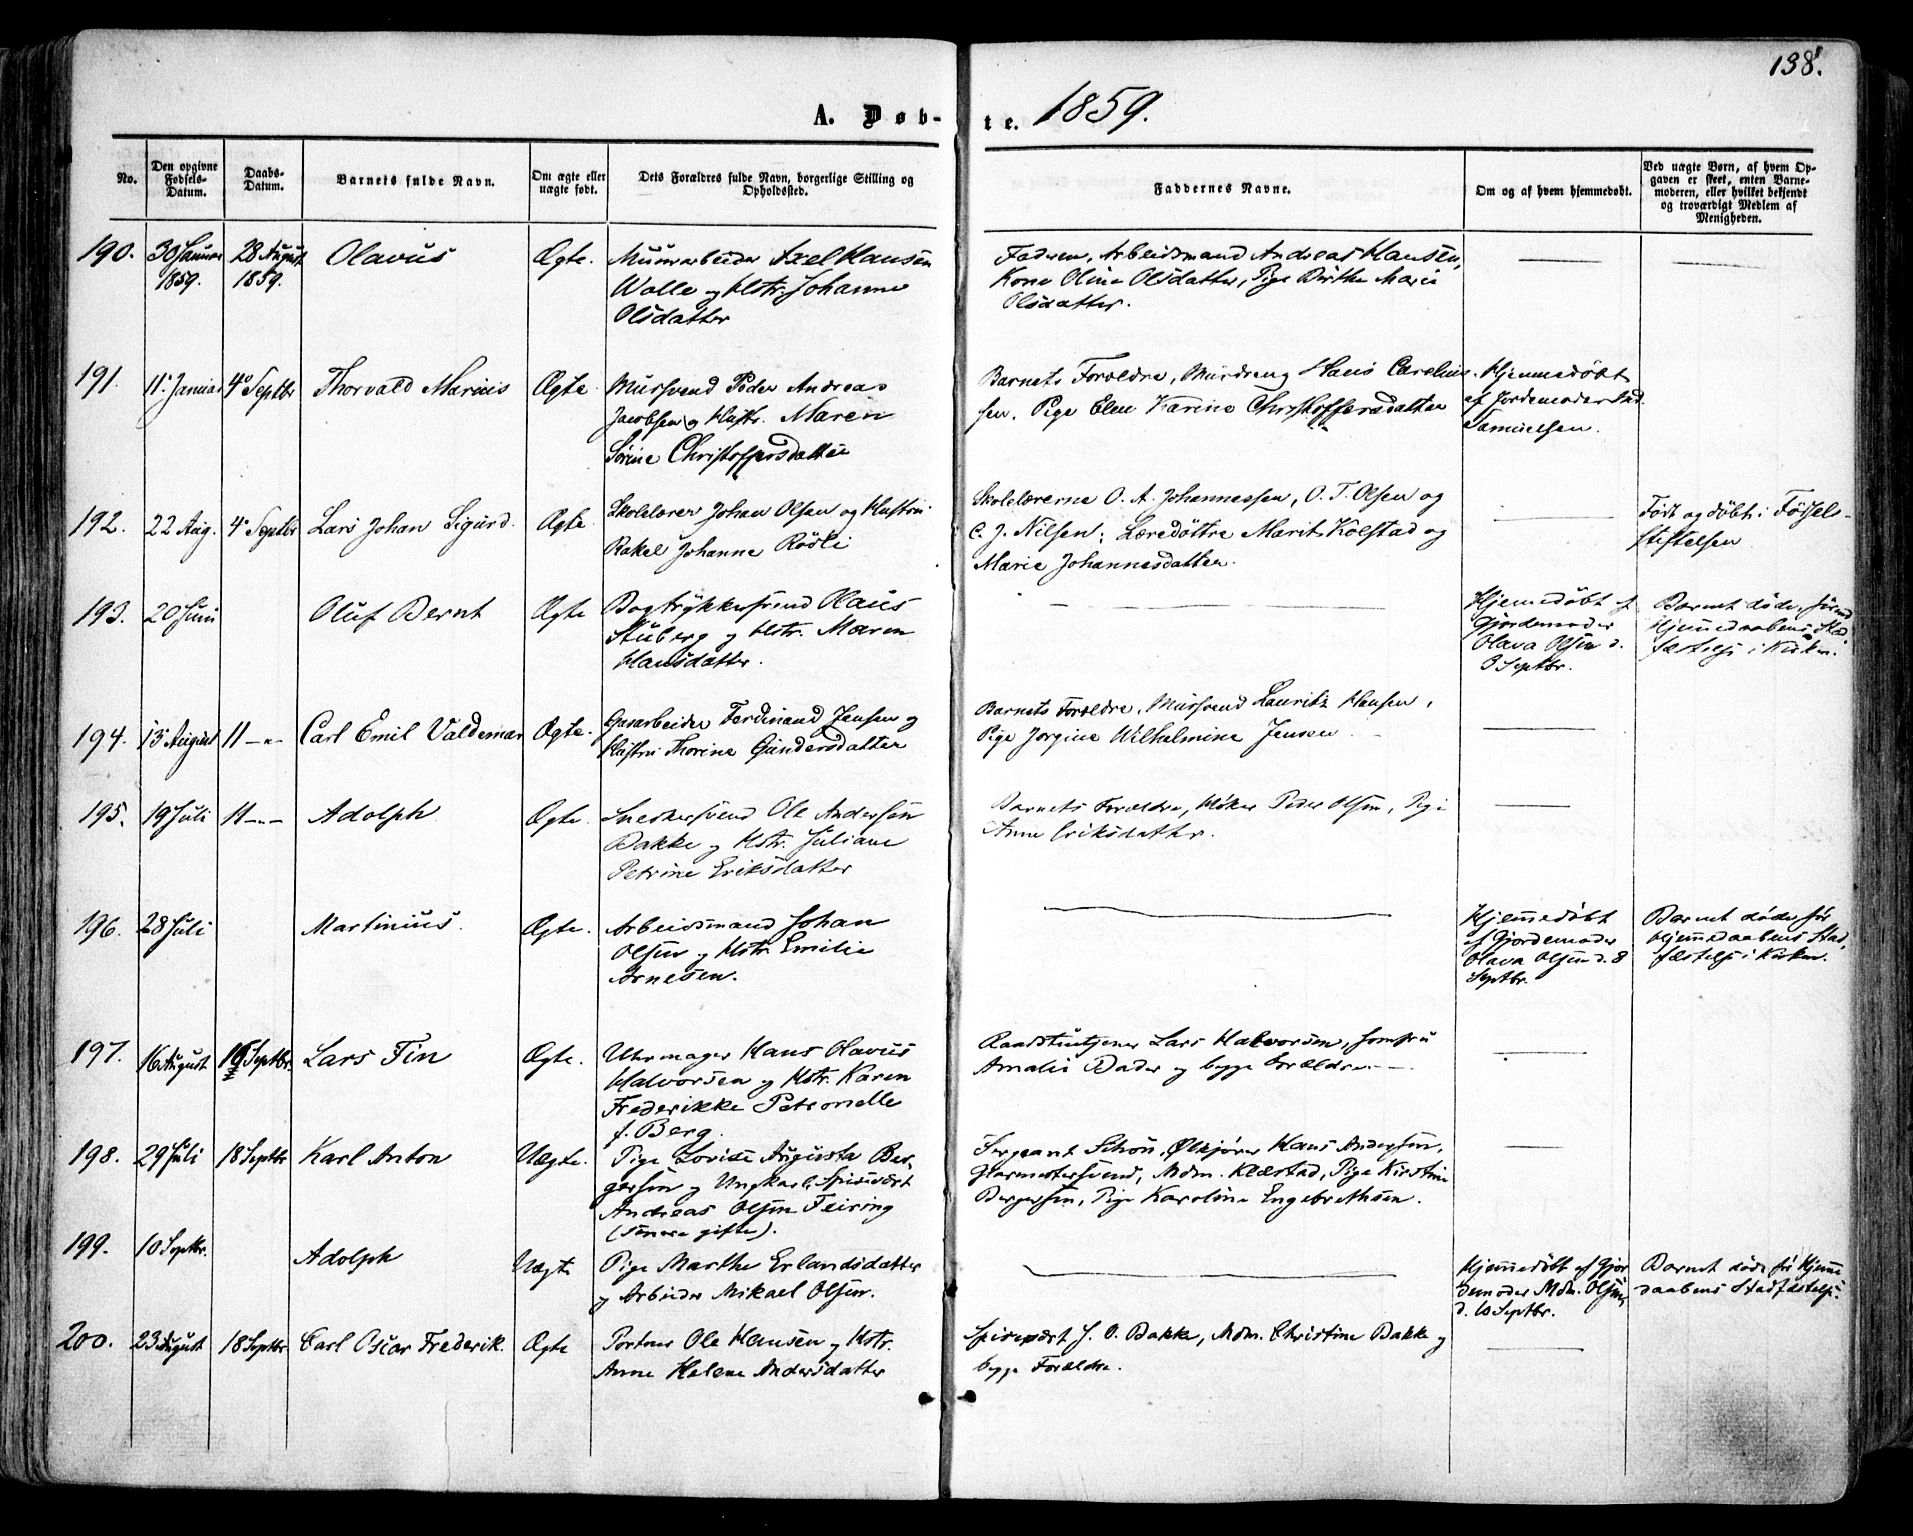 138.
A. Døb-
te. 1859.
No.
Den opgivne Fødsels-Datum.
Daabs-Datum.
Barnets fulde Navn.
Om ægte eller uægte født.
Dets Forældres fulde Navn, borgerlige Stilling og Opholdssted.
Faddernes Navne.
Om og af hvem hjemmedøbt.
Ved uægte Børn, af hvem Opgaven er skeet, enten Barnemoderen, eller hvilket bekjendt og troværdigt Medlem af Menigheden.
190. 30 Januar 28 August Olavus Ægte. Muurarbeider Axel Hansen Faderen, Arbeidsmand Andreas Hansen,
1859. 1859. Wolle og Hstr. Johanne Kone Oline Olsdatter, Pige Birthe Marie
Olsdatter Olsdatter.
191. 11. Januar 4 Septbr Thorvald Marius Ægte. Mursvend Peder Andreas Barnets Forældre, Murdreng Hans Carelius- Hjemmedøbt
Jacobsen og Hustr. Maren sen. Pige Elen Karine Christoffersdatter af Jordemoder
Sørine Christoffersdatter Samuelsen.
192. 22 Aug. 4 Septbr Lars Johan Sigurd. Ægte. Skolelærer Johan Olsen og Hustru Skolelærerne O. A. Johannessen, O. T. Olsen og Født og døbt i Fødsels-
Rakel Johanne Rösli C. J. Nilsen; Læredøttre Marit Kolstad og stiftelsen
Marie Johannesdatter.
193. 20 Juni Oluf Bernt Ægte Bogtrykkersvend Olaus Hjemmedøbt af Barnet døde, førend
Stuberg og Hstr. Maren Gjordemoder Hjemmedaabens Stad-
Hansdatter. Olava Olsen d. fæstelse i Kirken.
3 Septbr.
194. 13 August 11 -"- Carl Emil Valdemar Ægte. Gasarbeider Ferdinand Jensen og Barnets Forældre, Mursvend Lauritz Hansen,
Hustru Thorine Gundersdatter Pige Jorgine Wilhelmine Jensen
195. 19 Juli 11 -"- Adolph Ægte. Snedkersvend Ole Andersen Barnets Forældre, Høker Peder Olsen, Pige
Bakke og Hstr. Juliane Anne Eriksdatter.
Petrine Eriksdatter
196. 28 Juli Martinius. Ægte. Arbeidsmand Johan Hjemmedøbt Barnet døde før
Olsen og Hstr. Emilie af Gjordemoder Hjemmedaabens Stad-
Arnesen. Olava Olsen d. 8 fæstelse i Kirken.
Septbr.
197. 16 August Septbr. Lars Fin Ægte. Uhrmager Hans Olavus Raadstutjener Lars Halvorsen, Jomfru
Halvorsen og Hstr. Karen Amalie Bader og begge Forældre.
Frederikke Petronelle
f. Berg.
198. 29 Juli 18 Septbr Karl Anton Uægte. Pige Lovise Augusta Ber- Sergeant Schou, Ølkjører Hans Andersen,
gersen og Ungkarl, Spisevært Glarmestersvend, Mdm. Klæstad, Pige Kirstine
Andreas Olsen Feiring Bergersen, Pige Karoline Engebrethsen.
(senere gifte).
199. 10 Septbr. Adolph Uægte Pige Marthe Erlandsdatter Hjemmedøbt af Gjor Barnet døde før Hjemme
og Arbeider Mikael Olsen. demoder Mdm. Olsen, daabens Stadfæstelse.
d. 10 Septbr.
200. 23 August 18 Septbr Carl Oscar Frederik. Ægte Portner Ole Hansen og Hstr. Spisevært J. O. Bakke, Mdm. Christine Bakke og
Anne Helene Andersdatter begge Forældre.